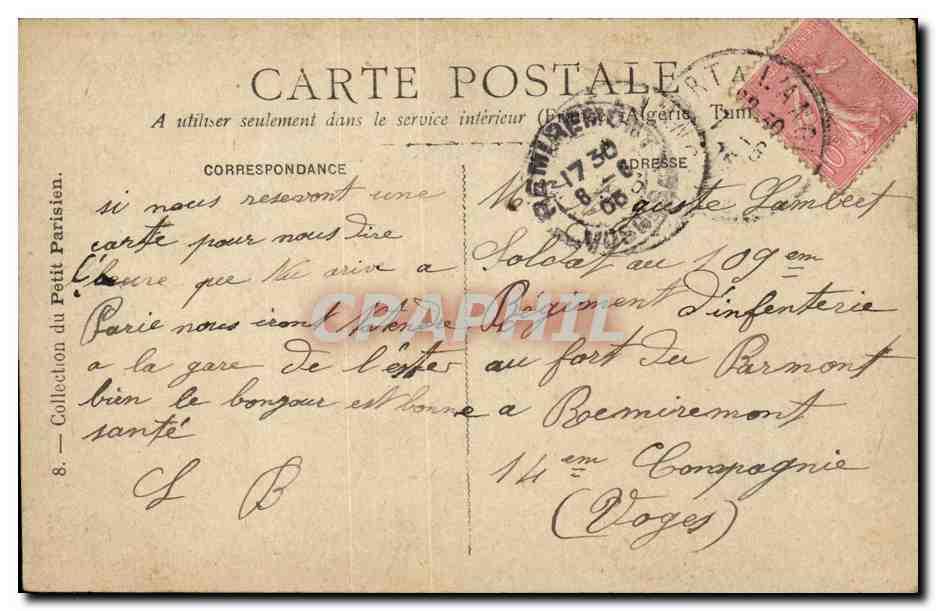 CARTE POSTALE
A utiliser seulement dans le service intérieur Algérie, Tunis
CORRESPONDANCE
si nous resevont une
carte pour nous dire
l'heure que tu arive a
Parie nous iront t'atendre
a la gare de l'ester
bien le bonjour est bonne
santé
L B
ADRESSE
Lambert
Soldat au 109em
Régiment d'infenterie
au fort du Parmont
a Remiremont
14em Compagnie
(Voges)
8. — Collection du Petit Parisien.
REMIREMONT
17 30
8
06
VOSGES
10
CPAPHIL